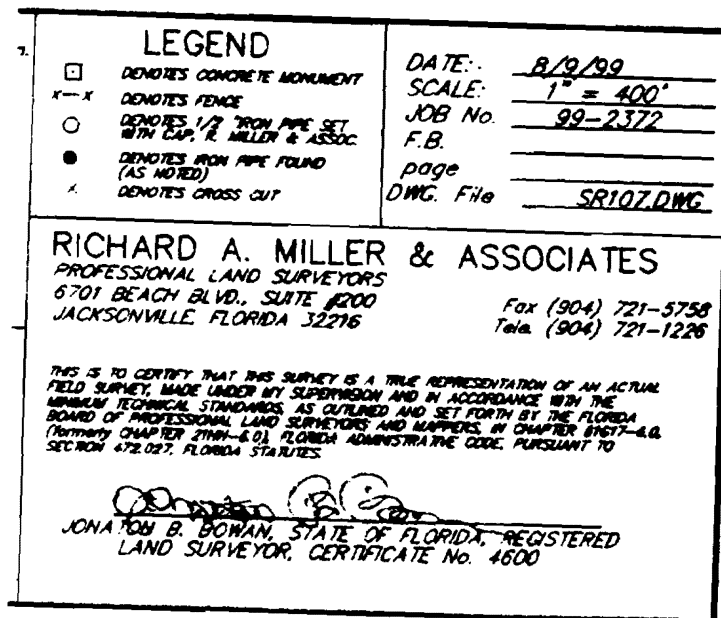 7.
LEGEND
DENOTES CONCRETE MONUMENT
x—x DENOTES FENCE
DENOTES 1/2 "IRON PIPE SET
WITH CAP, R. MILLER & ASSOC.
DENOTES IRON PIPE FOUND
(AS NOTED)
x DENOTES CROSS CUT
DATE: 8/9/99
SCALE: 1" = 400'
JOB No. 99-2372
F.B.
page
DWG. File SR107.DWG
RICHARD A. MILLER & ASSOCIATES
PROFESSIONAL LAND SURVEYORS
6701 BEACH BLVD., SUITE #200
JACKSONVILLE, FLORIDA 32216
Fax (904) 721-5758
Tele. (904) 721-1226
THIS IS TO CERTIFY THAT THIS SURVEY IS A TRUE REPRESENTATION OF AN ACTUAL
FIELD SURVEY, MADE UNDER MY SUPERVISION AND IN ACCORDANCE WITH THE
MINIMUM TECHNICAL STANDARDS, AS OUTLINED AND SET FORTH BY THE FLORIDA
BOARD OF PROFESSIONAL LAND SURVEYORS AND MAPPERS, IN CHAPTER 61G17-6.0,
(formerly CHAPTER 21HH-6.0), FLORIDA ADMINISTRATIVE CODE, PURSUANT TO
SECTION 472.027, FLORIDA STATUTES.
JONATON B. BOWAN, STATE OF FLORIDA, REGISTERED
LAND SURVEYOR, CERTIFICATE No. 4600